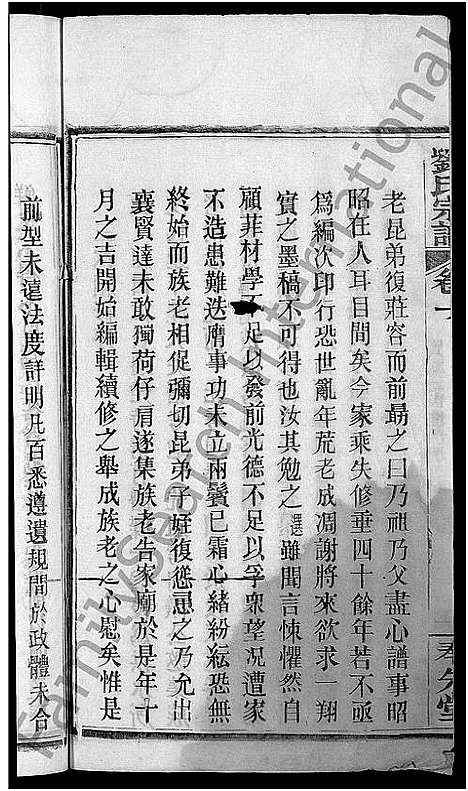 劉氏宗譜 卷一 奉先堂
老昆弟復莊容而前勗之曰乃祖乃父盡心譜事昭
昭在人耳目間矣今家乘失修垂四十餘年若不亟
爲編次印行恐世亂年荒老成凋謝將來欲求一翔
實之墨稿不可得也汝其勉之雖聞言悚懼然自
顧菲材學不足以發前光德不足以孚衆望况遭家
不造患難迭膺事功未立兩鬢已霜心緒紛紜恐無
終始而族老相促彌切昆弟子姪復慫恿之乃允出
襄賢達未敢獨荷仔肩遂集族老告家廟於是年十
月之吉開始編輯續修之舉成族老之心慰矣惟是
前型未遠法度詳明凡百悉遵遺規間於政體未合
FamilySearch International